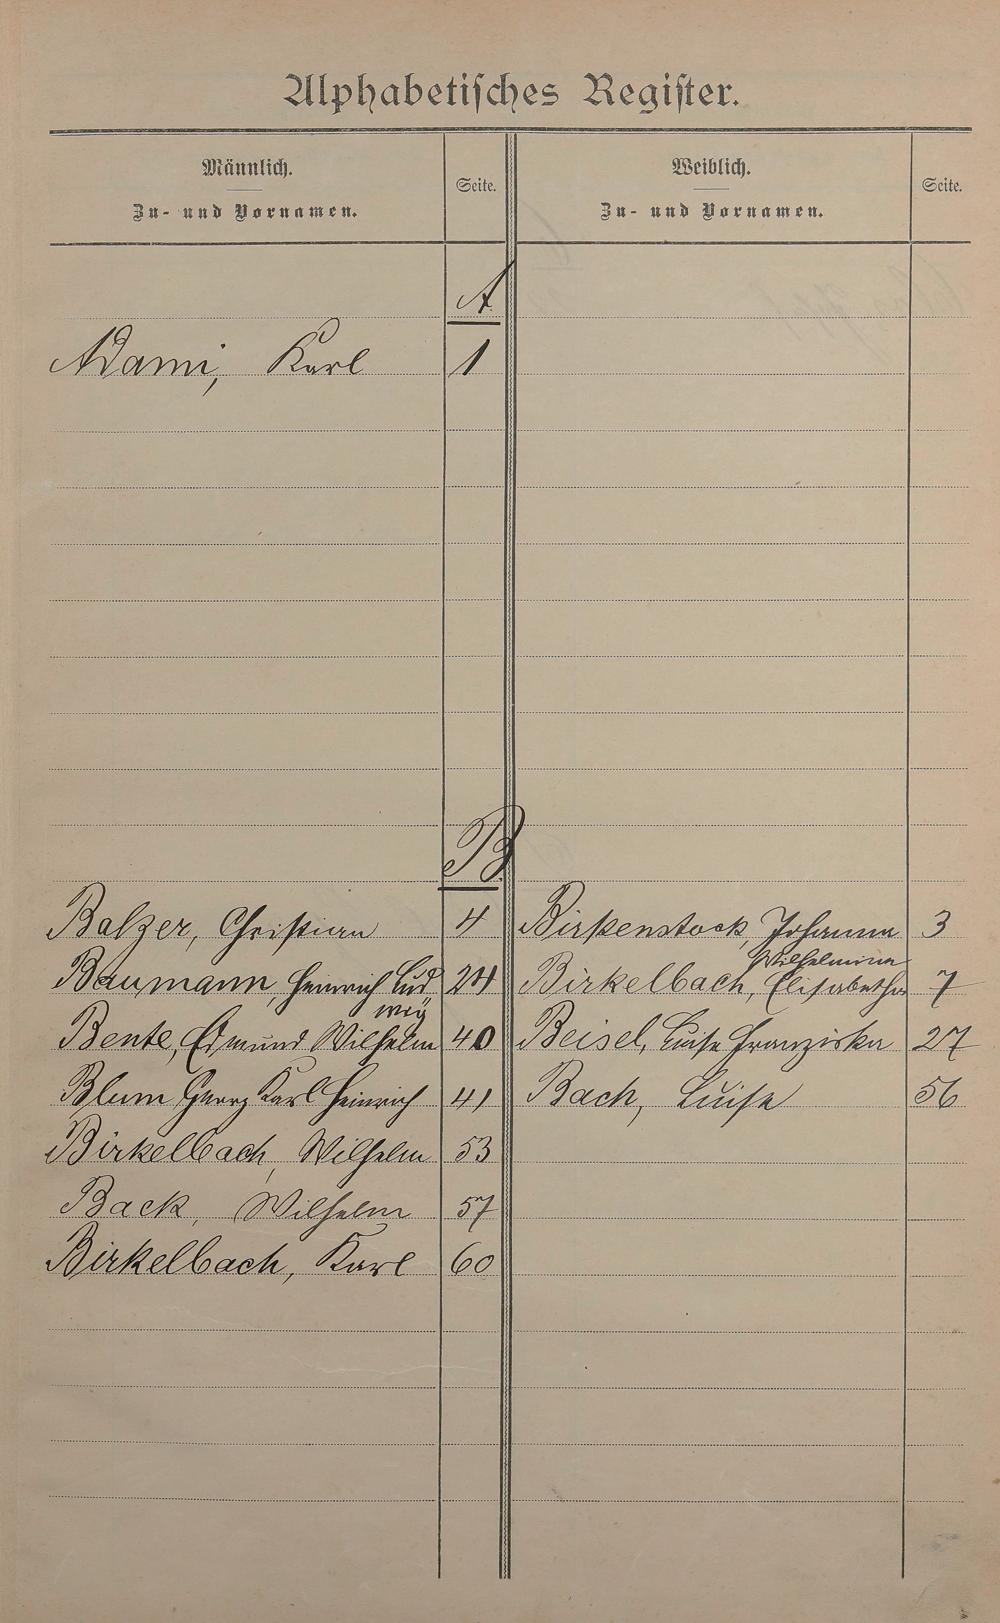 Alphabetisches Register.
Männlich. Seite. Weiblich. Seite.
Zu- und Vornamen. Zu- und Vornamen.
A.
Adami, Karl 1
B.
Balzer, Christian 4 Birkenstock, Johanna 3
Wilhelmine
Baumann, Heinrich Lud 24 Birkelbach, Elisabetha 7
wig
Bente, Edmund Wilhelm 40 Beisel, Luise Franziska 27
Blum Georg Karl Heinrich 41 Bach, Luise 56
Birkelbach, Wilhelm 53
Back, Wilhelm 57
Birkelbach, Karl 60